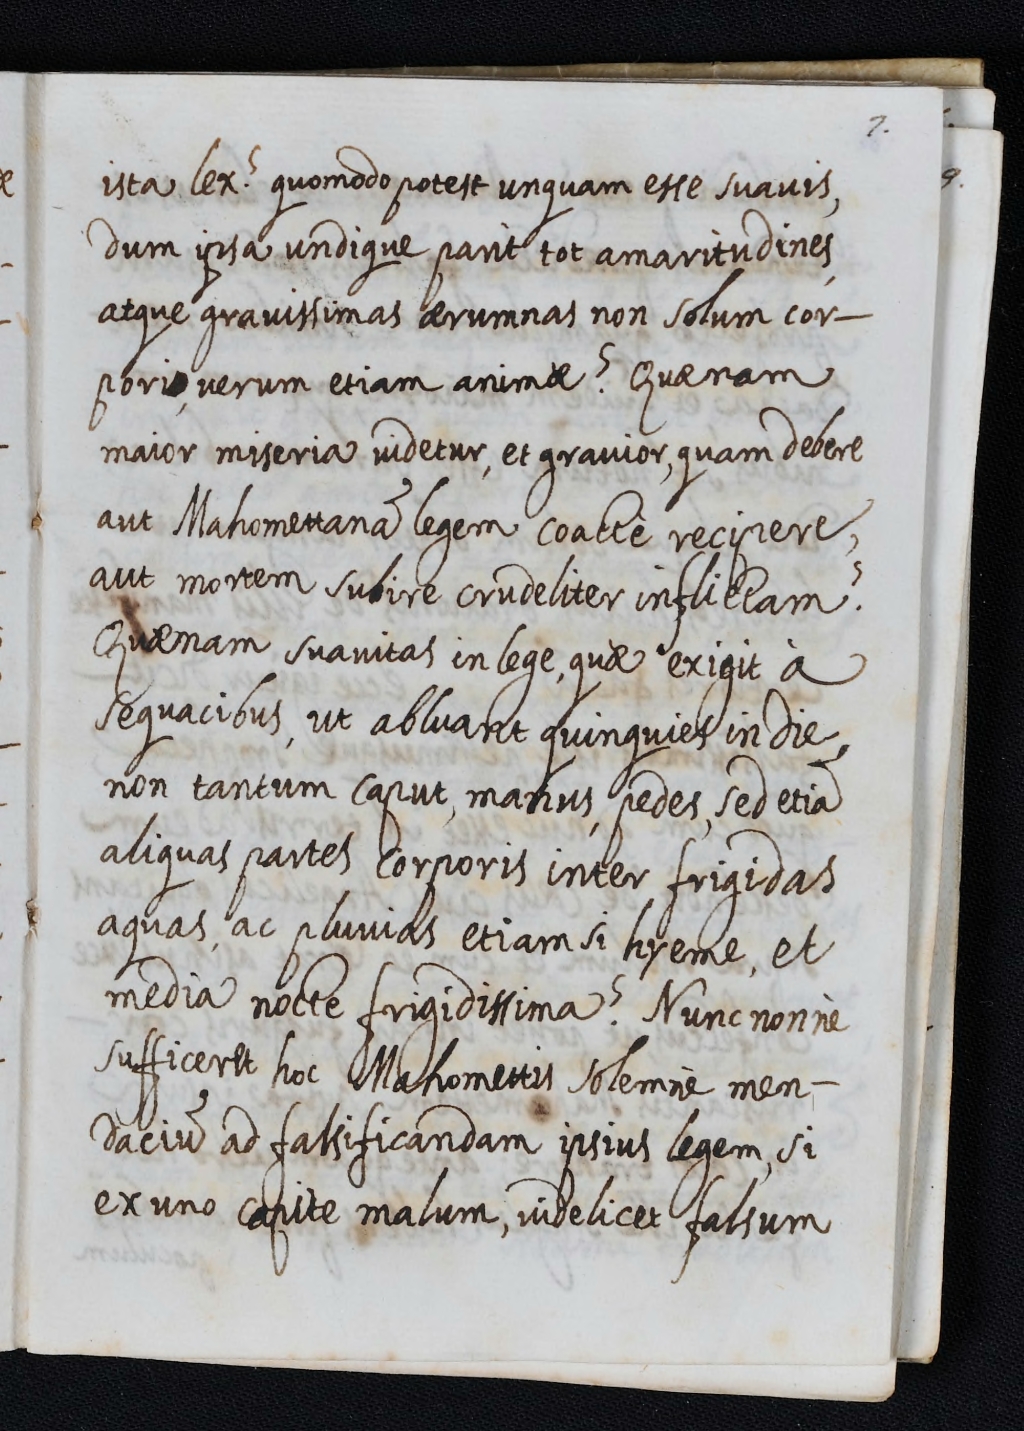 7.
ista lex? quomodo potest unquam esse suauis,
dum ipsa undique parit tot amaritudines,
atque gravissimas ærumnas non solum cor-
poris, uerum etiam animæ? Quænam
maior miseria uidetur, et grauior, quam debere
aut Mahomettanã legem coactè recipere,
aut mortem subire crudeliter inflictam?
Quænam suauitas in lege, quæ exigit à
sequacibus, ut abluant quinquies in die,
non tantum caput, manus, pedes, sed etiã
aliquas partes corporis inter frigidas
aquas, ac pluuias etiam si hyeme, et
media nocte frigidissima? Nunc nonne
sufficeret hoc Mahomettis solemne men-
daciũ ad falsificandam ipsius legem, si
ex uno capite malum, uidelicet falsum
9.